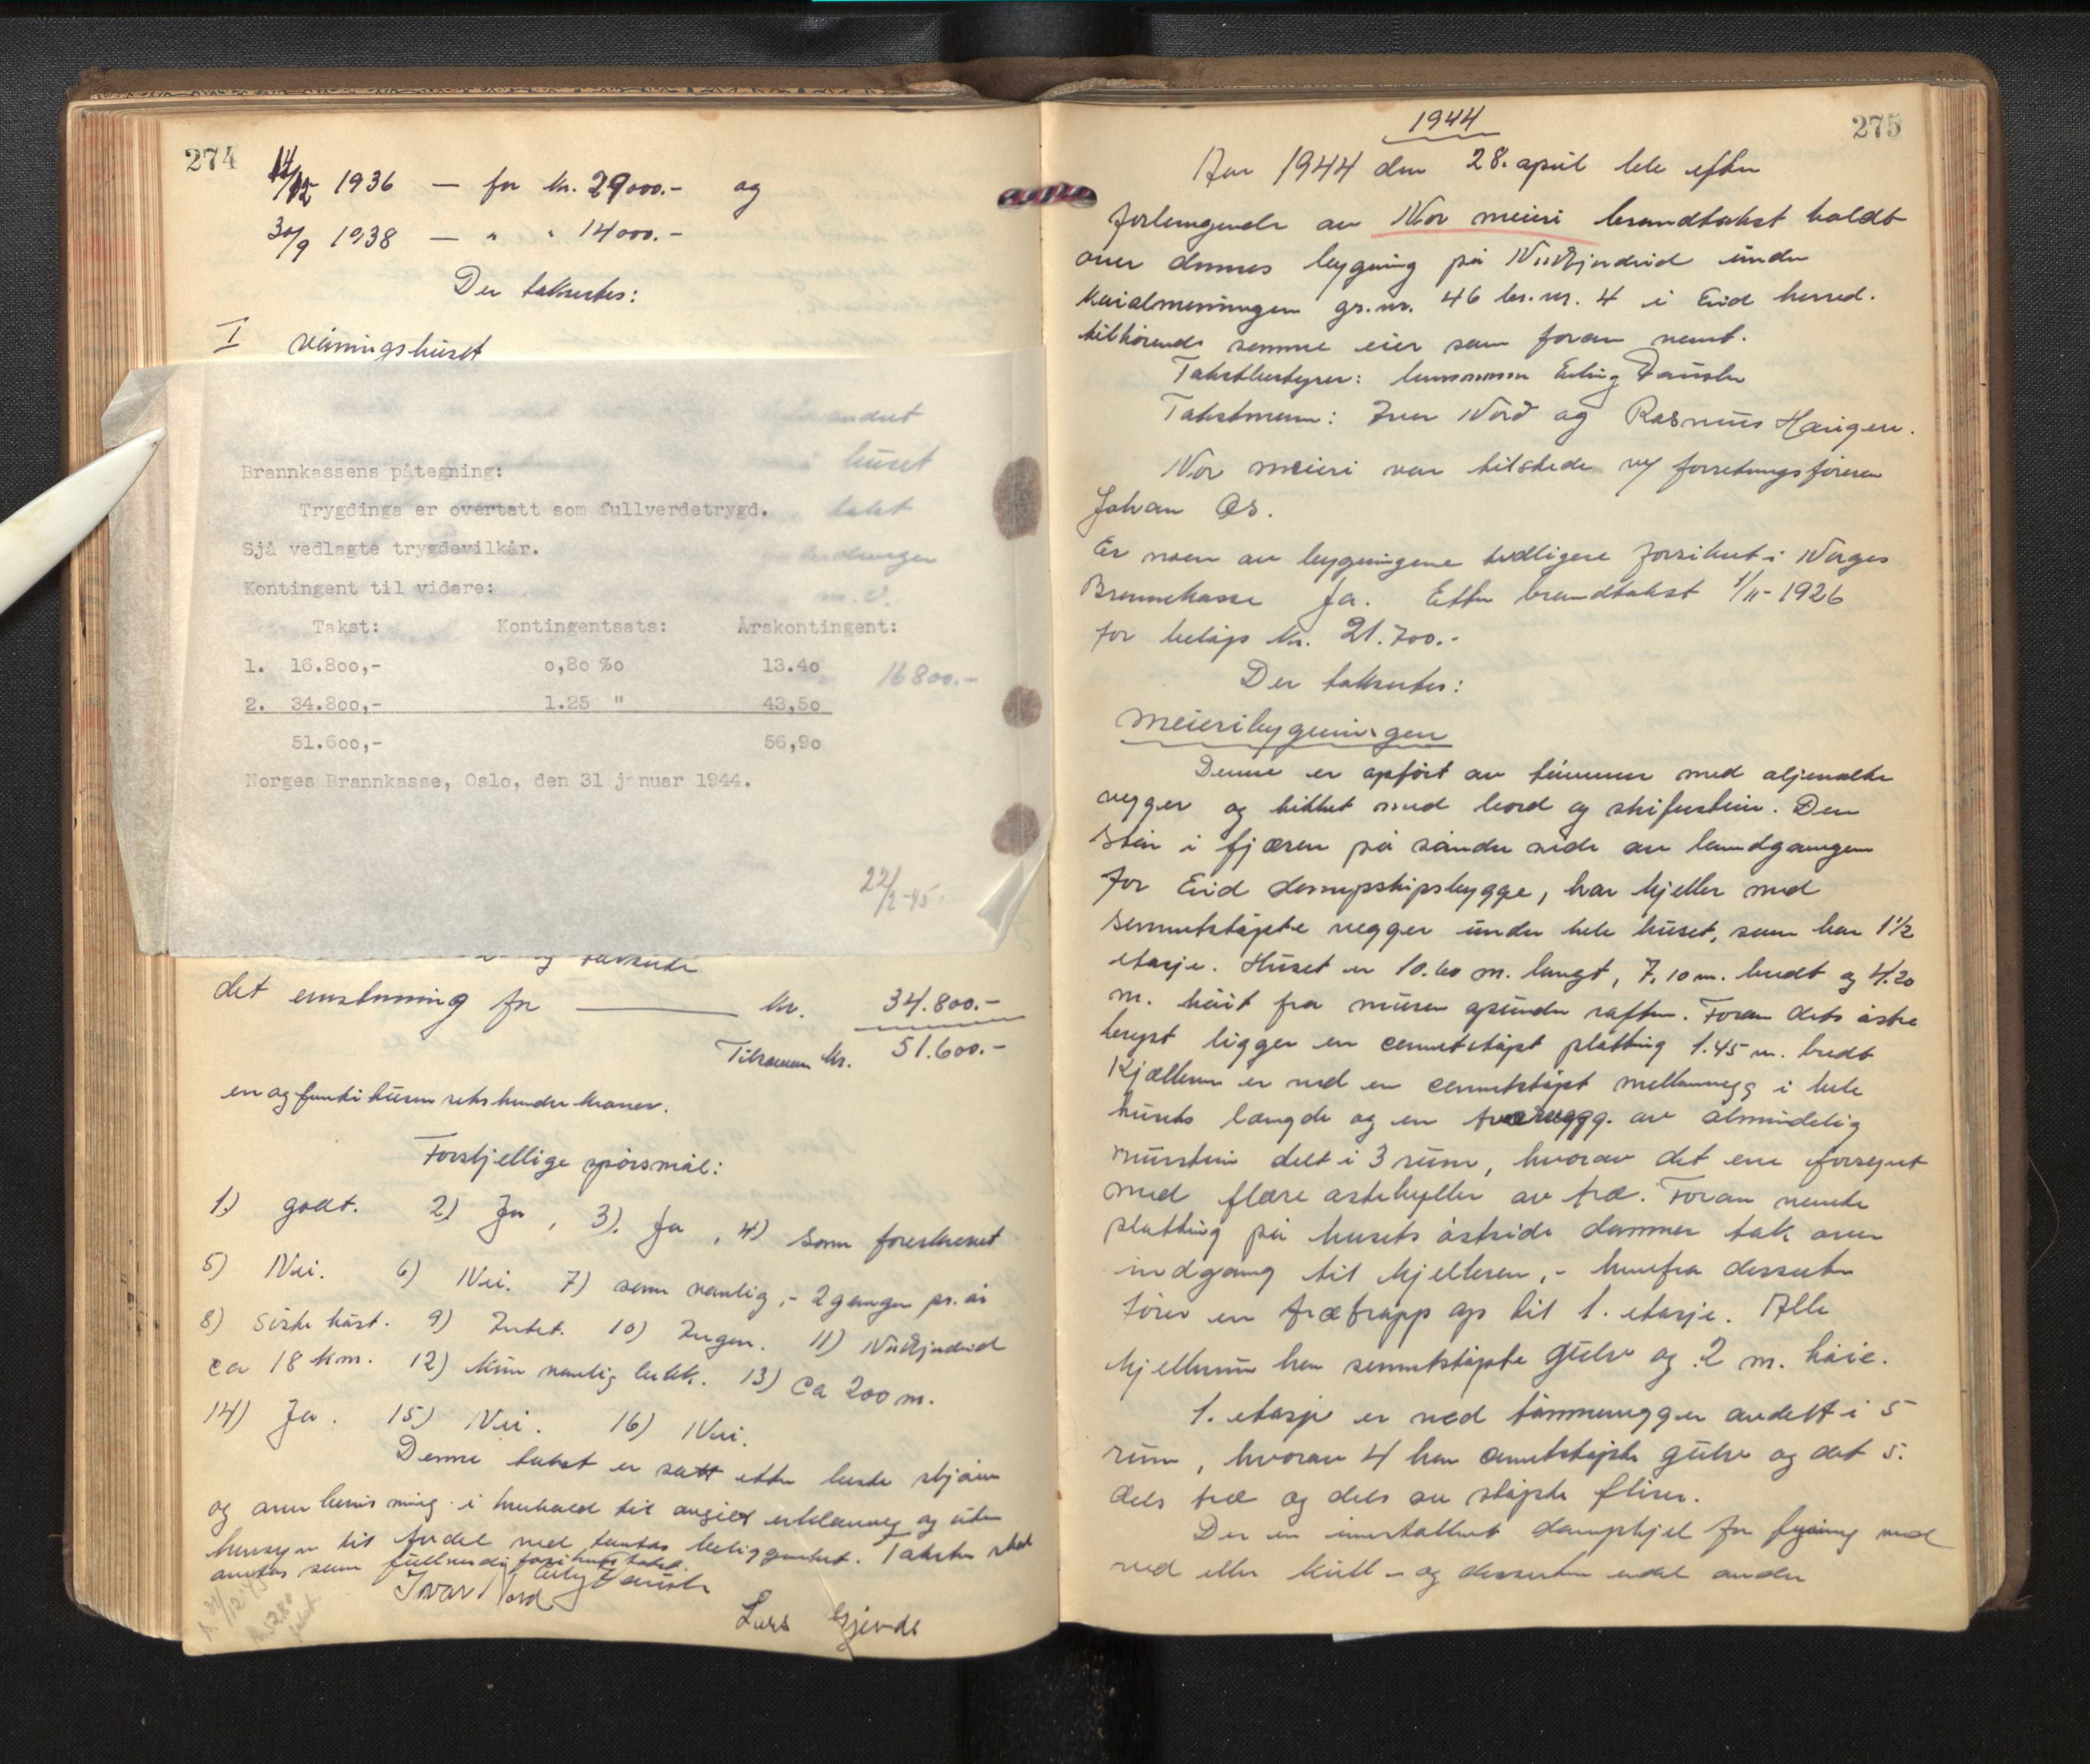 274
14/12 1936 — for kr. 29000.- og
30/9 1938 — " " 14000.-
Der takseres:
I våningshuset
andret
huset
takst
m.v.
16800.-
Brannkassens påtegning:
Trygdinga er overtatt som fullverdetrygd.
Sjå vedlagte trygdevilkår.
Kontingent til vidare:
Takst: Kontingentsats: Årskontingent:
1. 16.800,- 0,80 ‰ 13.40
2. 34.800,- 1.25 " 43,50
51.600,- 56,90
Norges Brannkasse, Oslo, den 31 januar 1944.
22/2-45.
det erstatning for — kr. 34.800.-
Tilsammen kr. 51.600.-
en og femti tusen seks hundre kroner.
Forskjellige spörsmål:
1.) godt. 2) Ja, 3). Ja, 4) Som foreskrevet
5) Nei. 6) Nei. 7) som vanlig,- 2 ganger pr. år
8) Siste höst. 9) Intet. 10) Ingen. 11) Nordfjordeid
ca 18 km. 12) Kun vanlig 13) ca 200 m.
14) Ja. 15) Nei. 16) Nei.
Denne takst er satt etter beste skjönn
og overbevisning i henhold til avgitt erklæring og uten
hensyn til fordel ved tomtas beliggenhet. Taksten skal
ansees som fullverdig forsikringstakst.
Ivar Nord Erling
Lars Gjerde
1944
275
Aar 1944 den 28. april ble efter
forlangende av Nor meieri brandtakst holdt
over dennes bygning på Nordfjordeid under
gr.nr. 46 br.nr. 4 i Eid herred.
tilhörende samme eier som foran nemt.
Takstbestyrer: lensmann Erling
Takstmenn: Iver Nord og Rasmus Haugen.
Nor meieri var tilstede v/ forretningsföreren
Johan Os.
Er noen av bygningene tidligere forsikret i Norges
Brannkasse Ja. Etter brandtakst 1/11-1926
for belöp kr. 21.700.-
Der takseres:
Meieribygningen
Denne er opfört av tömmer med oljemalte
vegger og tekket med bord og skiferstein. Den
står i fjæren på söndre side av landgangen
for Eid dampskipsbrygge, har kjeller med
sementstöpte vegger under hele huset, som har 1½
etasje. Huset er 10.60 m. langt, 7,10 m. bredt og 4.20
m. höit fra muren öpunder raften. Foran dets östre
ligger en cementstöpt platting 1.45 m. bredt
Kjelleren er ved en cementstöpt mellomvegg i hele
husets længde og en tværvegg. av almindelig
murstein delt i 3 rum, hvorav det ene forsynet
med flere ostehyller av træ. Foran nemte
platting på husets östside danner tak over
indgang til kjelleren,- hvorfra dessuten
förer en trætrapp op til 1. etasje. Alle
kjellerrum har sementstöpte gulv og 2 m. höie.
1. etasje er ved tömmervegger avdelt i 5
rum, hvorav 4 har cementstöpte gulv og det 5.
dels træ og dels av stöpte fliser.
Der er innstallert dampkjel for fyring med
ved eller kull - og dessuten endel andre